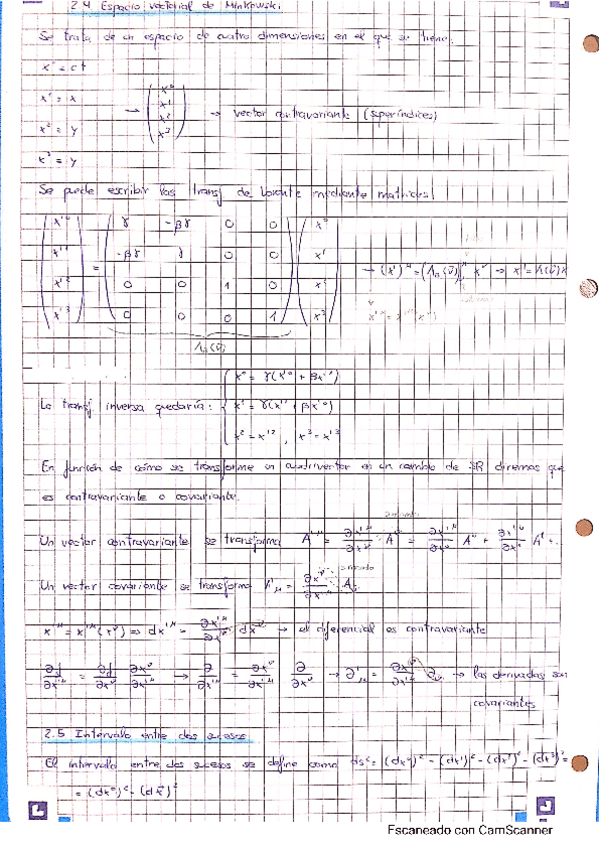 2.4 Espacio vectorial de Minkowski.
Se trata de un espacio de cuatro dimensiones en el que se tiene:
x⁰ = ct
x¹ = x
x² = y
x³ = y
→ (x⁰ x¹ x² x³) → vector contravariante (superíndices)
Se puede escribir las transf de Lorentz mediante matrices:
(x'⁰ x'¹ x'² x'³) =
γ -βγ 0 0
-βγ γ 0 0
0 0 1 0
0 0 0 1
(x⁰ x¹ x² x³)
→ (x')^μ = (Λ_n(v̄))^μ_ν x^ν → x' = Λ(v̄)x
Λ_n(v̄)
x⁰ = γ(x'⁰ + βx'¹)
La transf. inversa quedaría: x¹ = γ(x'¹ + βx'⁰)
x² = x'², x³ = x'³
En función de cómo se transforme un cuadrivector en un cambio de SR diremos que
es contravariante o covariante.
Un vector contravariante se transforma A'^μ = ∂x'^μ/∂x^ν A^ν = ∂x'^μ/∂x⁰ A⁰ + ∂x'^μ/∂x¹ A¹ + ...
Un vector covariante se transforma A'_μ = ∂x^ν/∂x'^μ A_ν
x'^μ = x'^μ(x^ν) ⇒ dx'^μ = ∂x'^μ/∂x^ν dx^ν → el diferencial es contravariante
∂f/∂x'^μ = ∂f/∂x^ν ∂x^ν/∂x'^μ → ∂/∂x'^μ = ∂x^ν/∂x'^μ ∂/∂x^ν → ∂'_μ = ∂x^ν/∂x'^μ ∂_ν → las derivadas son
covariantes
2.5 Intervalo entre dos sucesos
El intervalo entre dos sucesos se define como ds² = (dx⁰)² - (dx¹)² - (dx²)² - (dx³)² =
= (dx⁰)² - (dx̄)²
Escaneado con CamScanner